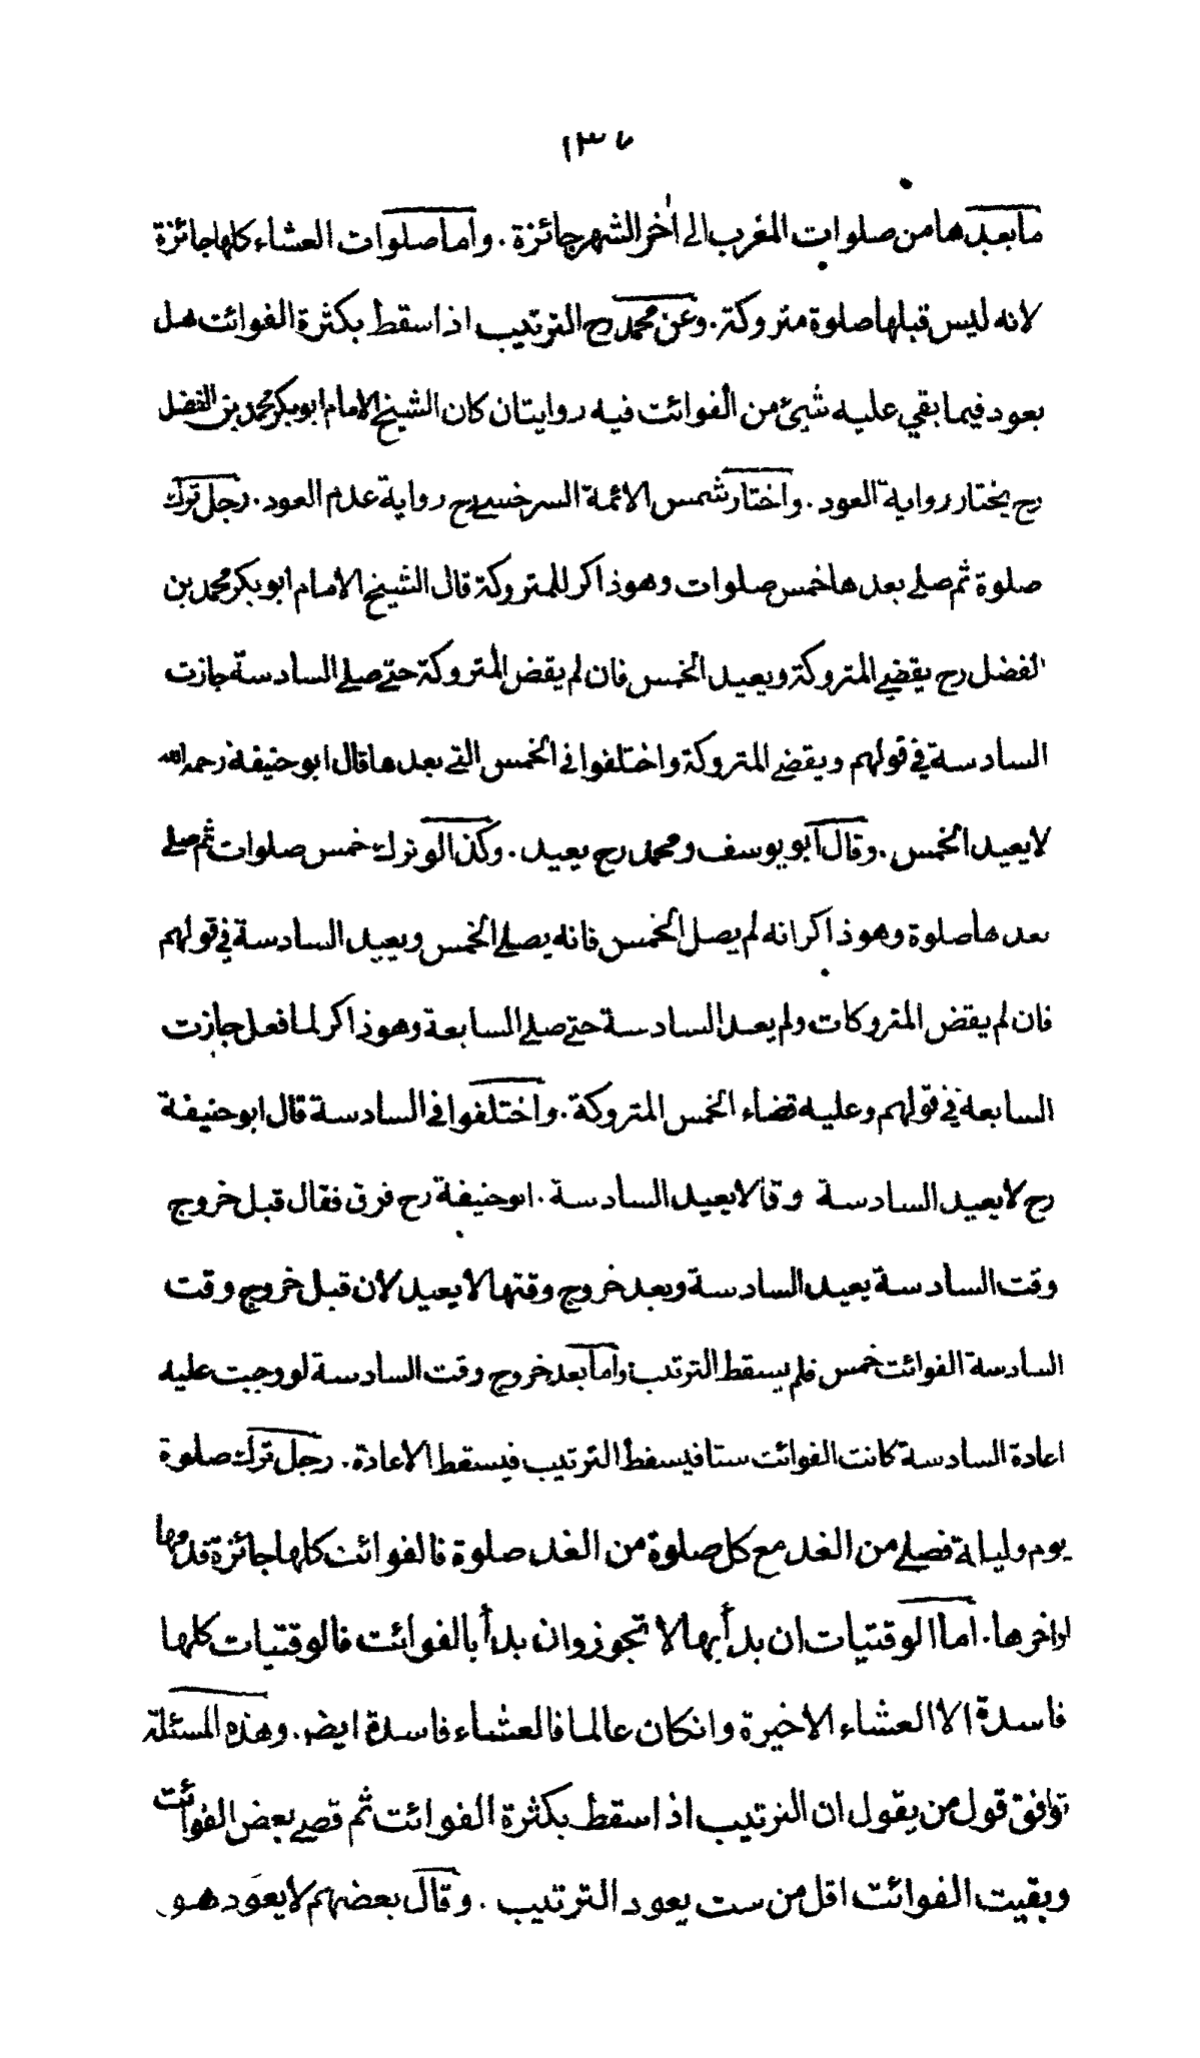 ١٣٦
ما بعدها من صلوات المغرب الى اٰخر الشهر جائزة . واما صلوات العشاء كلها جائزة
لانه ليس قبلها صلوة متروكة . وعن محمد رح الترتيب اذا سقط بكثرة الفوائت هل
يعود فيما بقي عليه شئ من الفوائت فيه روايتان كان الشيخ الامام ابو بكر محمد بن الفضل
رح يختار رواية العود . واختار شمس الائمة السرخسي رح رواية عدم العود . رجل ترك
صلوة ثم صلى بعدها خمس صلوات وهو ذاكر للمتروكة قال الشيخ الامام ابو بكر محمد بن
الفضل رح يقضي المتروكة ويعيد الخمس فان لم يقض المتروكة حتى صلى السادسة جازت
السادسة في قولهم ويقضي المتروكة واختلفوا في الخمس التي بعدها قال ابو حنيفة رحمه الله
لا يعيد الخمس . وقال ابو يوسف ومحمد رح يعيد . وكذا لو ترك خمس صلوات ثم صلى
بعدها صلوة وهو ذاكر انه لم يصل الخمس فانه يصلي الخمس ويعيد السادسة في قولهم
فان لم يقض المتروكات ولم يعد السادسة حتى صلى السابعة وهو ذاكر لما فعل جازت
السابعة في قولهم وعليه قضاء الخمس المتروكة . واختلفوا في السادسة قال ابو حنيفة
رح لا يعيد السادسة وقالا يعيد السادسة . ابو حنيفة رح فرق فقال قبل خروج
وقت السادسة يعيد السادسة وبعد خروج وقتها لا يعيد لان قبل خروج وقت
السادسة الفوائت خمس فلم يسقط الترتيب واما بعد خروج وقت السادسة لو وجبت عليه
اعادة السادسة كانت الفوائت ستا فيسقط الترتيب فيسقط الاعادة . رجل ترك صلوة
يوم وليلة فصلى من الغد مع كل صلوة من الغد صلوة فالفوائت كلها جائزة قدمها
او اخرها . اما الوقتيات ان بدأ بها لا تجوز وان بدأ بالفوائت فالوقتيات كلها
فاسدة الا العشاء الاخيرة وانكان عالما فالعشاء فاسدة ايض . وهذه المسئلة
توافق قول من يقول ان الترتيب اذا سقط بكثرة الفوائت ثم قضى بعض الفوائت
وبقيت الفوائت اقل من ست يعود الترتيب . وقال بعضهم لا يعود هو